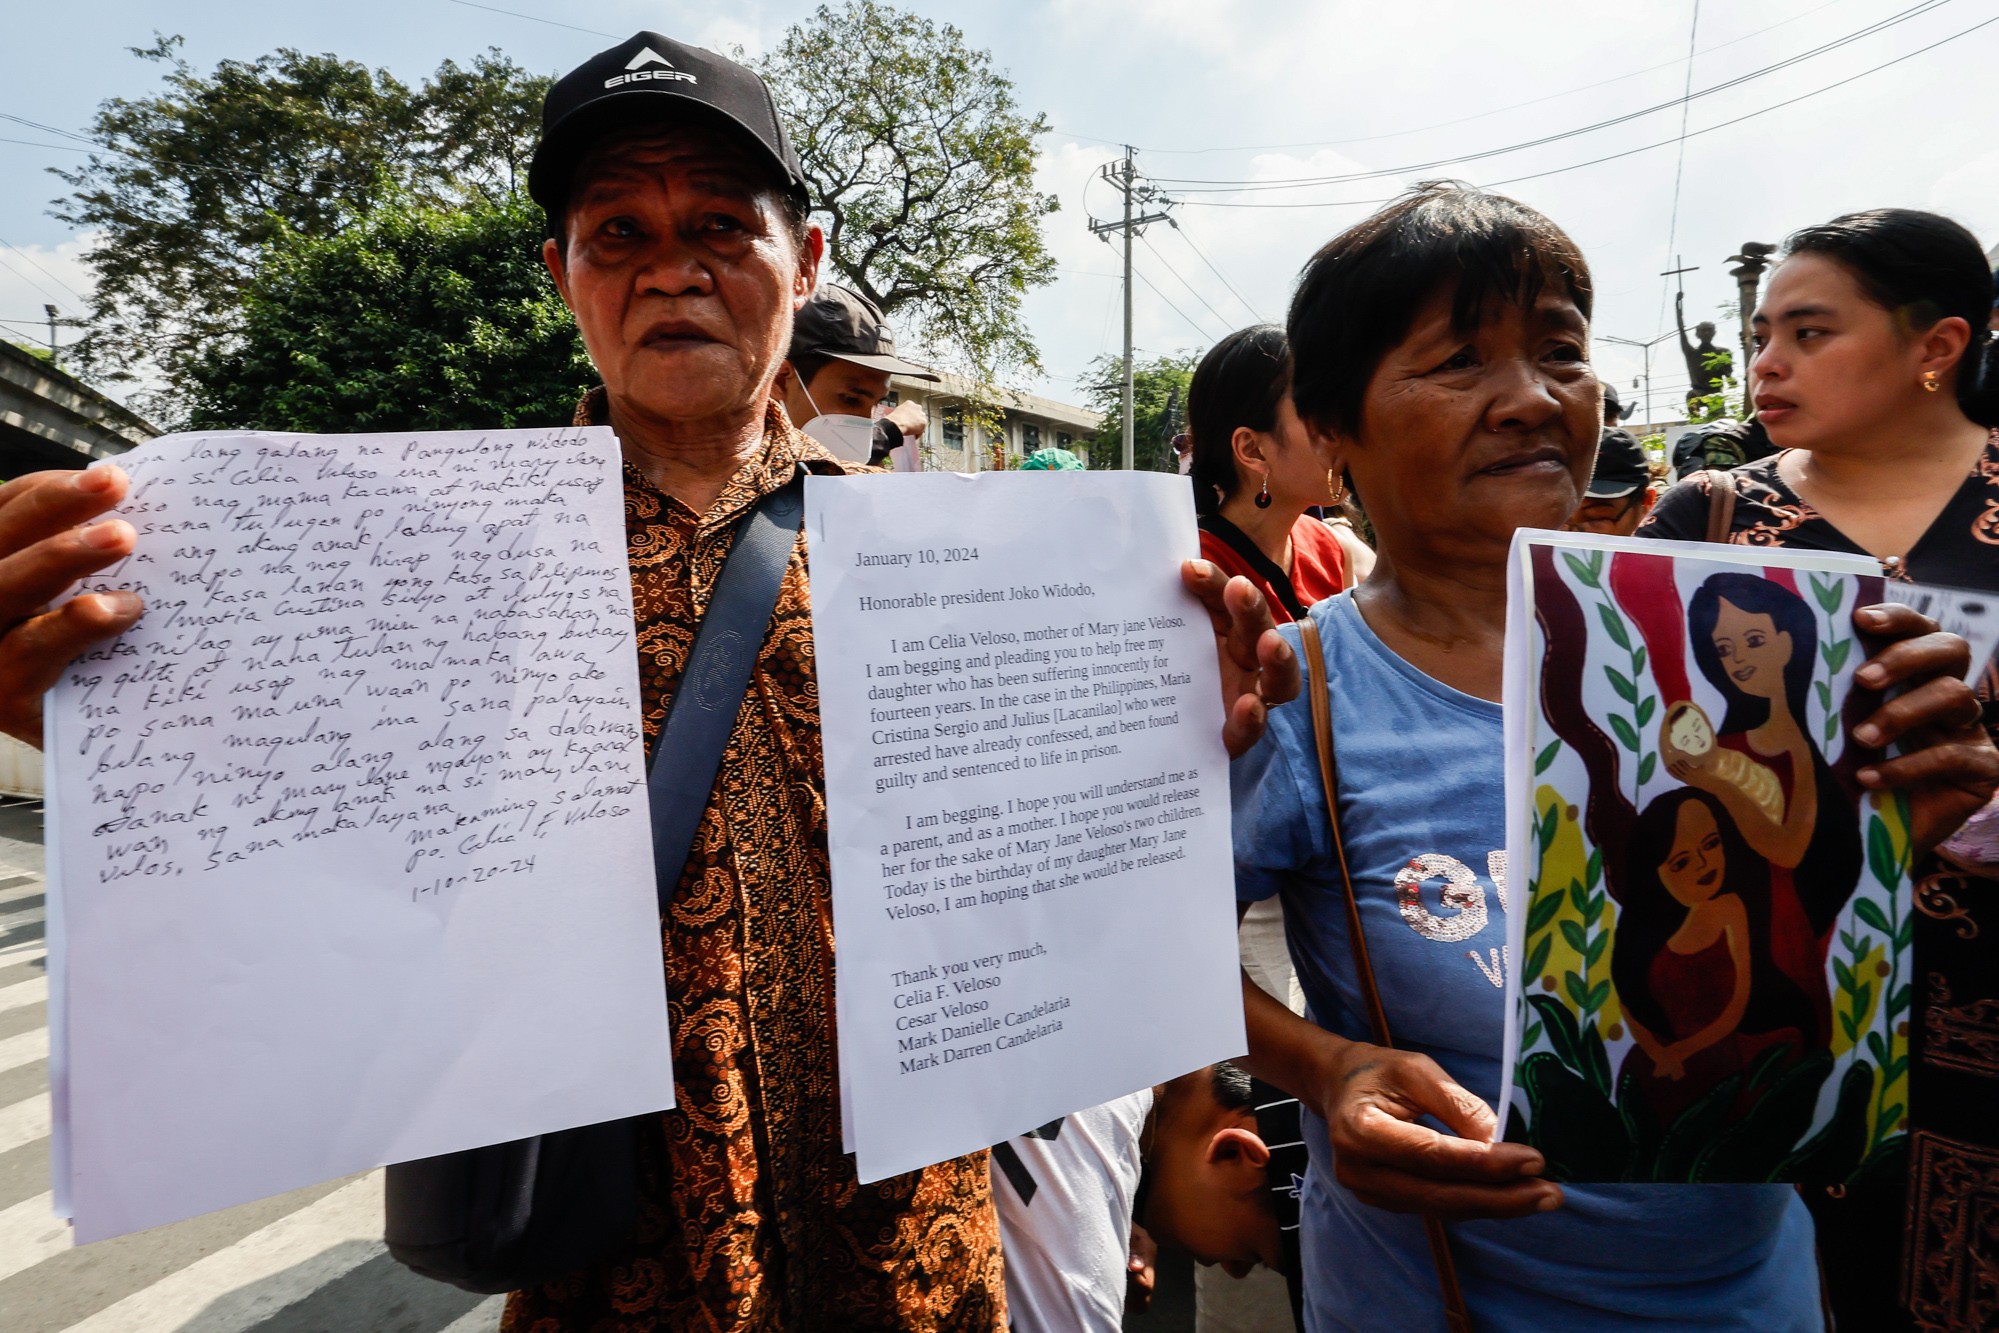 EIGER
nga lang galang na Pangulong widodo
po si Celia Veloso ina ni mary Jane
loso nag mama kaawa at nakiki usap
sana tulungan po ninyong maka
ang aking anak labing apat na
taon napo na nag hirap nag dusa na
ang kasa lanan yong kaso sa Pilipinas
maria Cristina Sergio at Julyos na
nakakulong ay uma min na nabasahan na
ng gilti at naha tulan ng habang buhay
na kiki usap nag mamaka awa
po sana ma una waan po ninyo ako
bilang magulang ina sana palayain
napo ninyo alang alang sa dalawang
anak ni mary Jane ngayon ay kaara
wan ng aking anak na si mary Jane
Velos, sana makalaya na
maraming salamat
po. Celia F. Veloso
1-10-20-24
January 10, 2024
Honorable president Joko Widodo,
I am Celia Veloso, mother of Mary jane Veloso.
I am begging and pleading you to help free my
daughter who has been suffering innocently for
fourteen years. In the case in the Philippines, Maria
Cristina Sergio and Julius [Lacanilao] who were
arrested have already confessed, and been found
guilty and sentenced to life in prison.
I am begging. I hope you will understand me as
a parent, and as a mother. I hope you would release
her for the sake of Mary Jane Veloso's two children.
Today is the birthday of my daughter Mary Jane
Veloso, I am hoping that she would be released.
Thank you very much,
Celia F. Veloso
Cesar Veloso
Mark Danielle Candelaria
Mark Darren Candelaria